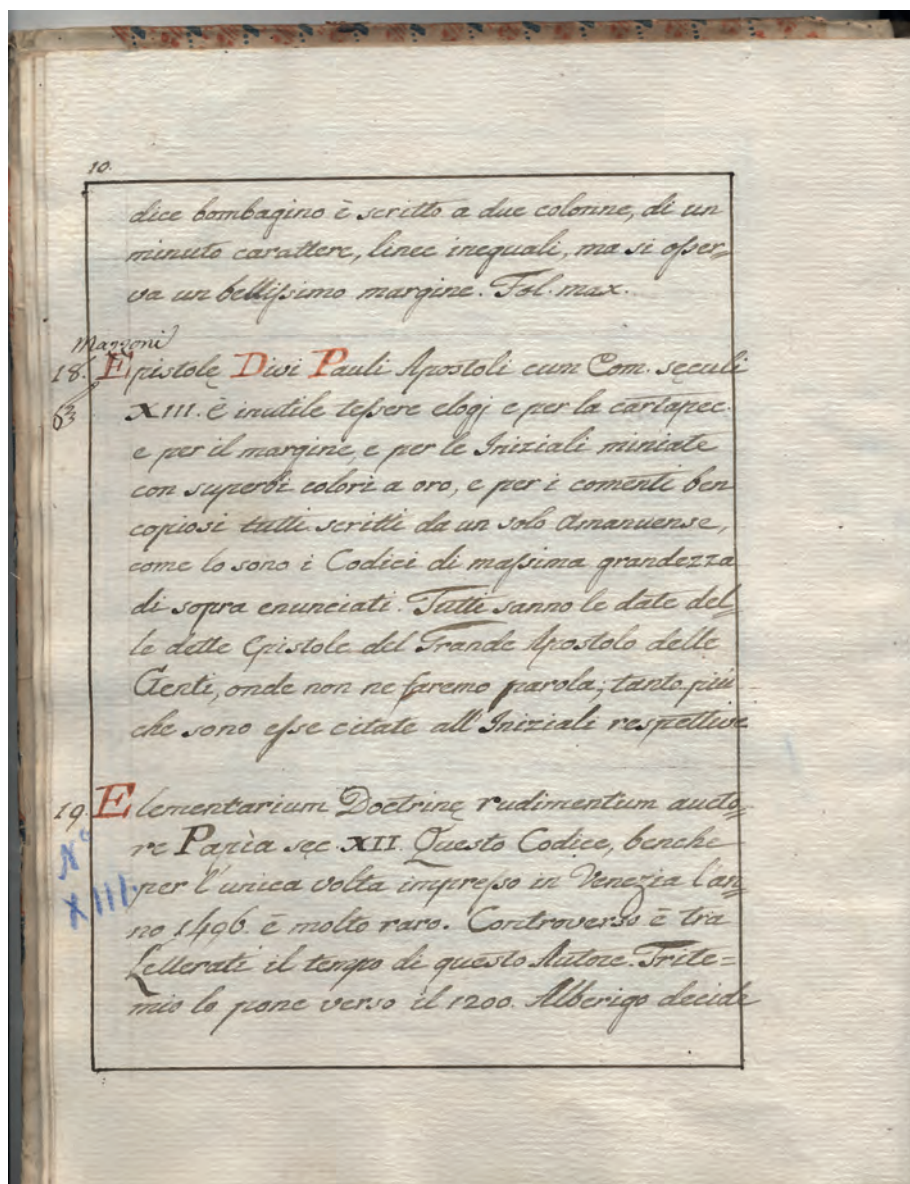 10.
dice bombagino è scritto a due colonne, di un
minuto carattere, linee inequali, ma si osser=
va un bellissimo margine. Fol. max.
Mazzoni
18. Epistolę Divi Pauli Apostoli cum Com. sęculi
63
XIII. è inutile tessere elogj e per la cartapec.
e per il margine, e per le Iniziali miniate
con superbi colori a oro, e per i comenti ben
copiosi tutti scritti da un solo Amanuense,
come lo sono i Codici di massima grandezza
di sopra enunciati. Tutti sanno le date del=
le dette Epistole del Grande Apostolo delle
Genti, onde non ne faremo parola; tanto più
che sono esse citate all' Iniziali respettive
19. Elementarium Doctrinę rudimentum aucto=
re Papìa sęc. XII. Questo Codice, benche
N°
XIII.
per l'unica volta impresso in Venezia l'an=
no 1496. è molto raro. Controverso è tra
Letterati il tempo di questo Autore. Trite=
mio lo pone verso il 1200. Alberigo decide